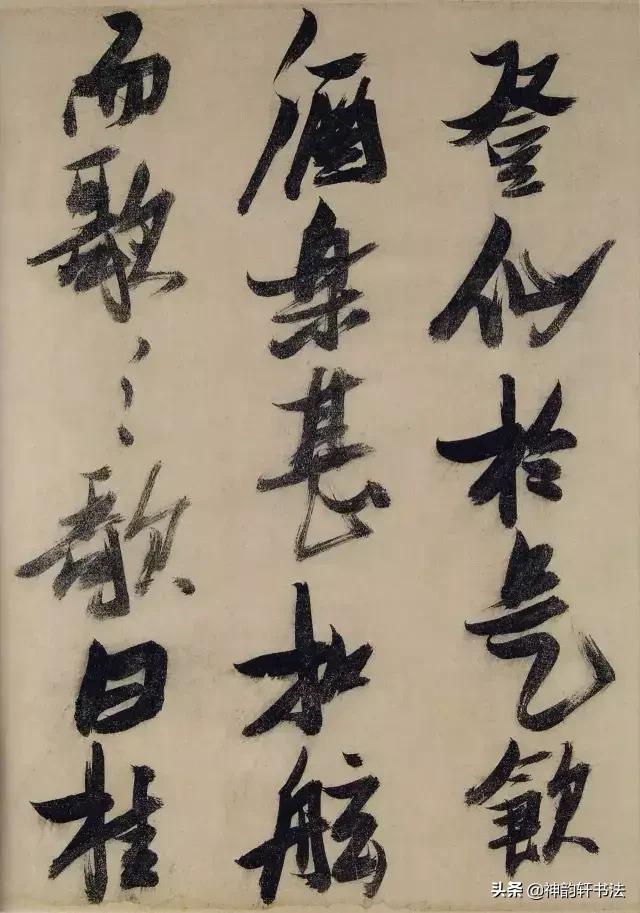 登仙於是飲
酒樂甚扣舷
而歌之歌曰桂
头条 @神韵轩书法